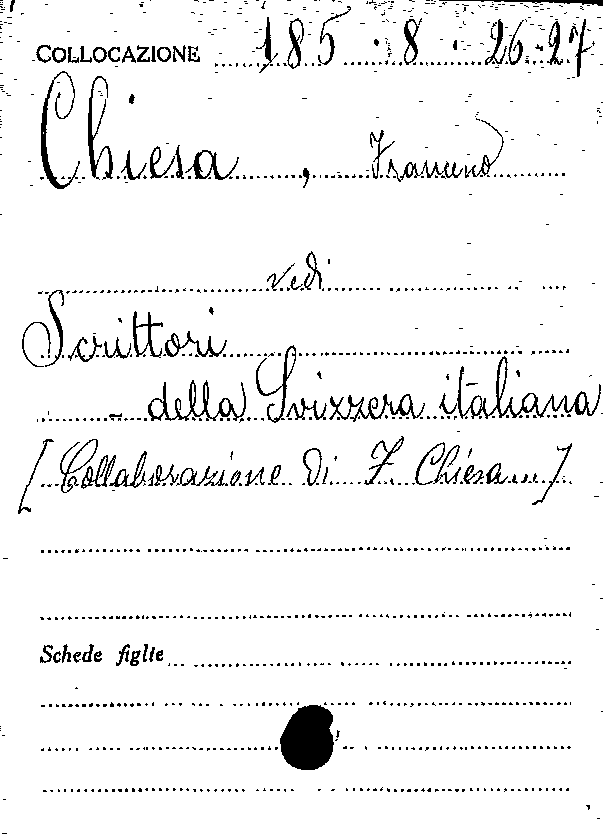 COLLOCAZIONE 185 . 8 . 26-27
Chiesa, Francesco
vedi
Scrittori
- della Svizzera italiana
[Collaborazione di F. Chiesa...]
Schede figlie